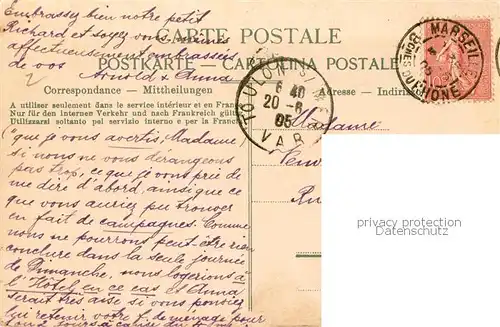 Embrassez bien notre petit
Richard et soyez vous mêmes
affectueusement embrassés
de vos
Arnold & Anna
CARTE POSTALE
POSTKARTE — CARTOLINA POSTALE
Correspondance - Mittheilungen
Adresse - Indirizzo
A utiliser seulement dans le service intérieur et en France
Nur für den internen Verkehr und nach Frankreich gültig
Utilizzarsi soltanto pel servizio interno e per la Francia
TOULON S/ MER
6 40
20 - 6
05
VAR
MARSEILLE
BOUCHES DU RHONE
Madame
que je vous avertis, Madame,
si nous ne vous dérangeons
pas trop, ce que je vous prie de
me dire d'abord, ainsi que ce
que vous auriez pu trouver
en fait de campagnes. Comme
nous ne pourrons peut-être rien
conclure dans la seule journée
de Dimanche, nous logerions à
l'Hôtel en ce cas et Anna
serait très aise si vous pouviez
lui retenir votre f. de ménage pour
propriety of reserved
www.delcampe.com